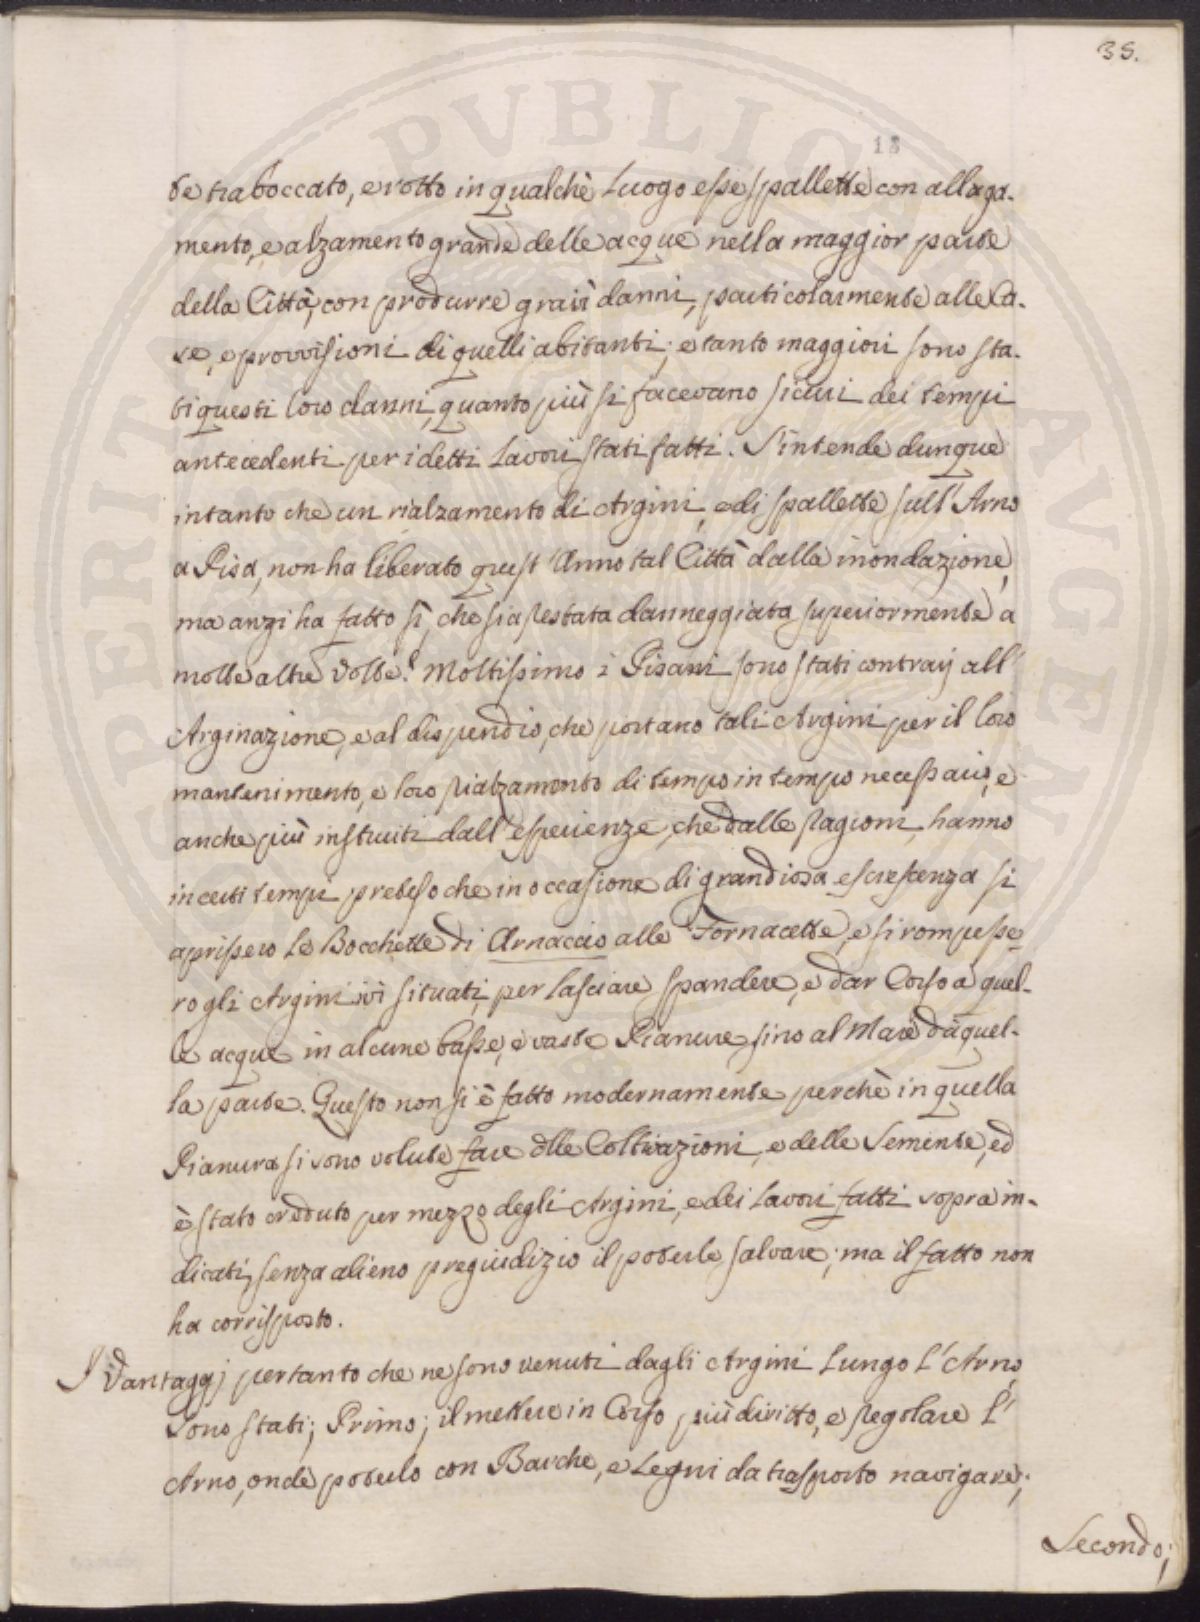 35.
18
te traboccato, e rotto in qualche Luogo esse spallette con allaga-
mento, e alzamento grande delle acque nella maggior parte
della Città, con produrre gravi danni, particolarmente alle Ca-
se, e provvisioni di quelli abitanti; e tanto maggiori sono sta-
ti questi loro danni, quanto più si facevano sicuri dei tempi
antecedenti per i detti Lavori stati fatti. S'intende dunque
intanto che un rialzamento di Argini, e di spallette sull'Arno
a Pisa, non ha liberato quest'Anno tal Città dalla inondazione,
ma anzi ha fatto sì, che sia restata danneggiata superiormente a
molte altre volte. Moltissimo i Pisani sono stati contrarj all'
Arginazione, e al dispendio, che portano tali Argini per il loro
mantenimento, e loro rialzamento di tempo in tempo necessario, e
anche più instruiti dall'esperienze, che dalle ragioni, hanno
in certi tempi preteso che in occasione di grandiosa escrescenza si
aprissero le Bocchette di Arnaccio alle Fornacette, e si rompesse-
ro gli Argini ivi situati, per lasciare spandere, e dar Corso a quel-
le acque in alcune basse, e vaste Pianure, sino al Mare da quel-
la parte. Questo non si è fatto modernamente perchè in quella
Pianura si sono volute fare delle Coltivazioni, e delle Semente, ed
è stato creduto per mezzo degli Argini, e dei Lavori fatti sopra in-
dicati, senza alieno pregiudizio il poterle salvare; ma il fatto non
ha corrisposto.
I Vantaggj pertanto che ne sono venuti dagli Argini Lungo L'Arno,
sono stati; Primo; il mettere in Corso più diritto, e regolare L'
Arno, onde poterlo con Barche, e Legni da trasporto navigare;
Secondo;
PERITAS PVBLICA AVGENDA